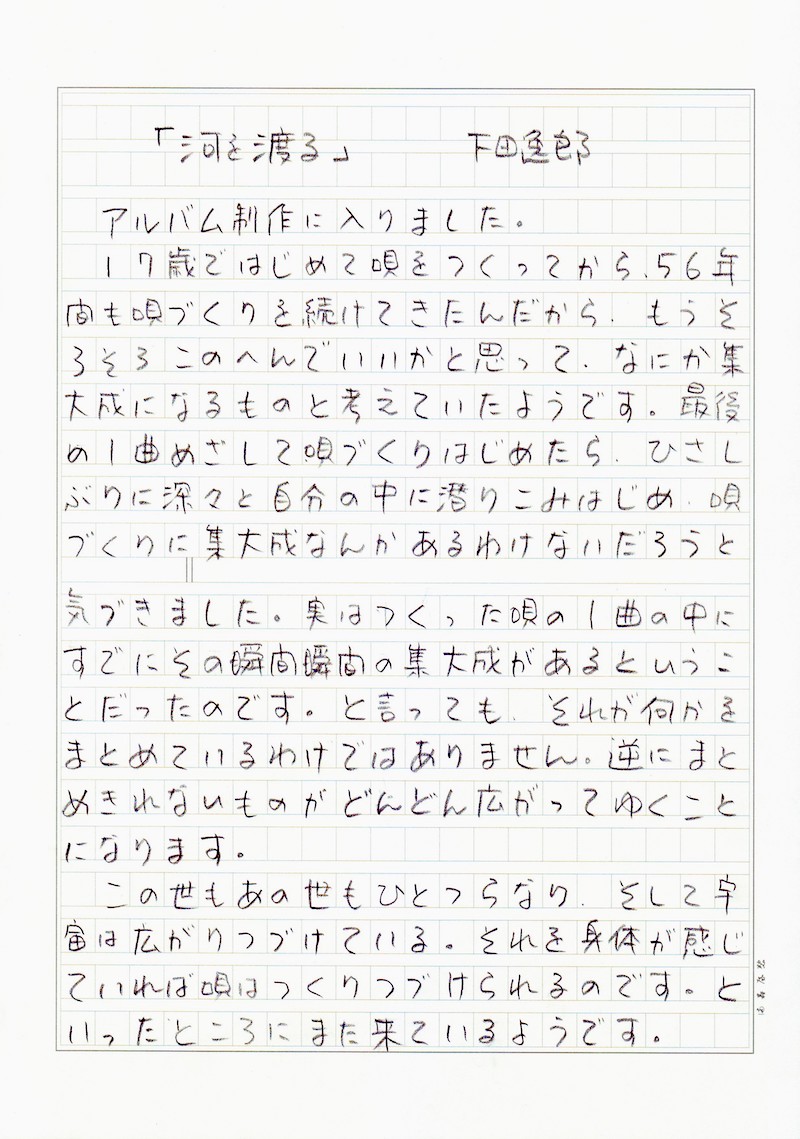 「河を渡る」 下田逸郎
アルバム制作に入りました。
17歳ではじめて唄をつくってから、56年
間も唄づくりを続けてきたんだから、もうそ
ろそろこのへんでいいかと思って、なにか集
大成になるものと考えていたようです。最後
の1曲めざして唄づくりはじめたら、ひさし
ぶりに深々と自分の中に潜りこみはじめ、唄
づくりに集大成なんかあるわけないだろうと
気づきました。実はつくった唄の1曲の中に
すでにその瞬間瞬間の集大成があるというこ
とだったのです。と言っても、それが何かを
まとめているわけではありません。逆にまと
めきれないものがどんどん広がってゆくこと
になります。
この世もあの世もひとつらなり、そして宇
宙は広がりつづけている。それを身体が感じ
ていれば唄はつくりつづけられるのです。と
いったところにまた来ているようです。